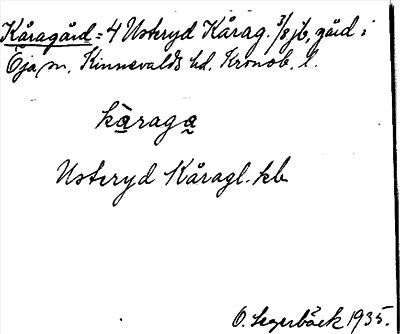 Kåragård = 4 Usteryd Kårag. 3/8 jb, gård i
Öja sn, Kinnevalds hd. Kronob. l.
kàraga
Usteryd Kåragl. kb
O. Segerbäck 1935.